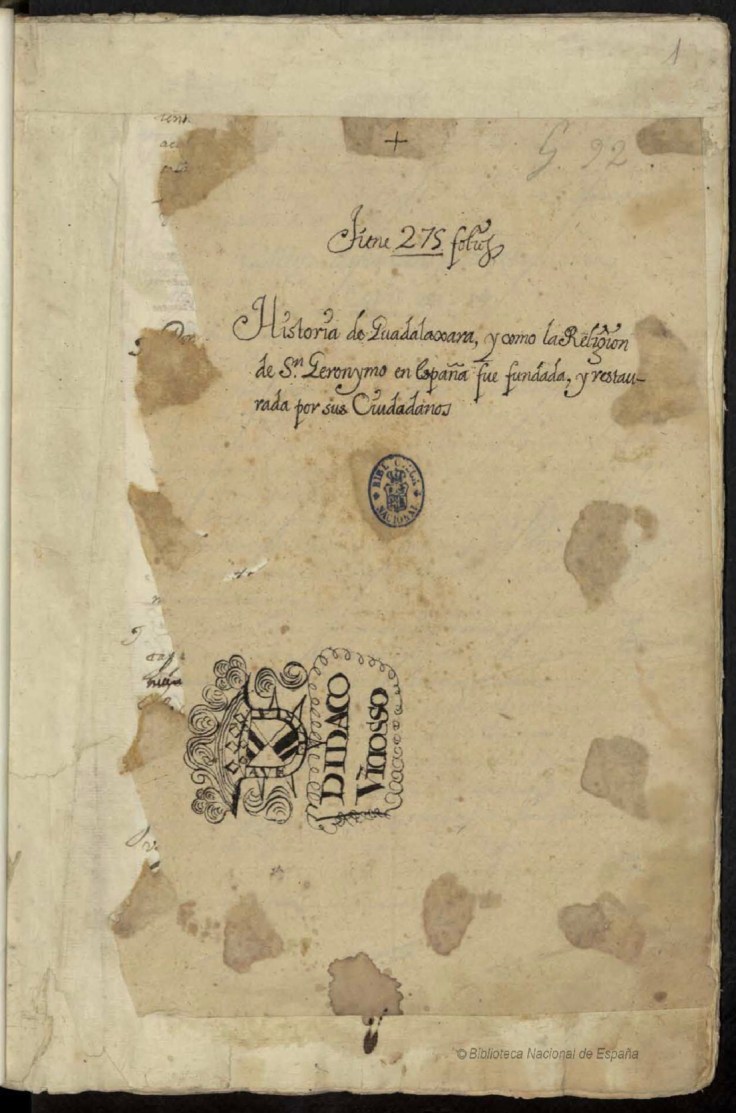 1
G. 92
Tiene 275 folios
Historia de Guadalaxara, y como la Religion
de Sn. Geronymo en España fue fundada, y restau-
rada por sus Ciudadanos
BIBLIOTECA
NACIONAL
AVE
DIDACO
© Biblioteca Nacional de España